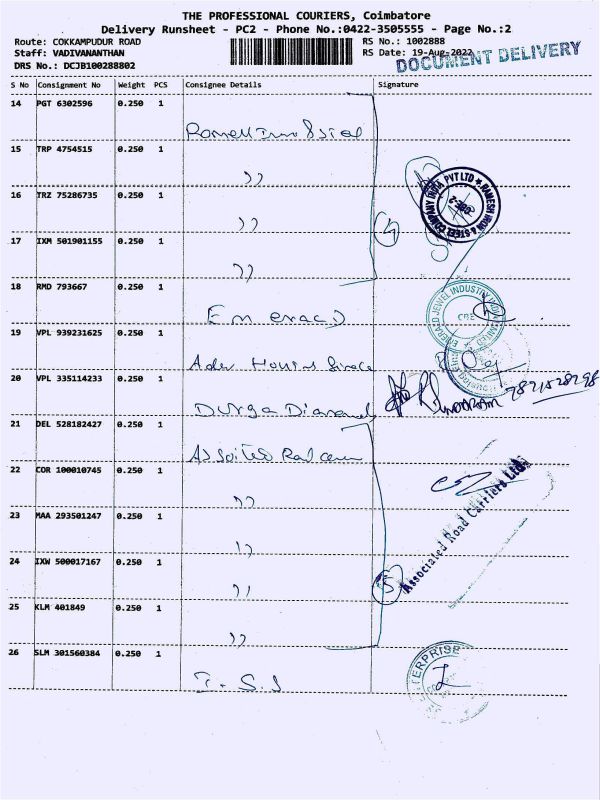 THE PROFESSIONAL COURIERS, Coimbatore
Delivery Runsheet - PC2 - Phone No.:0422-3505555 - Page No.:2
Route: COKKAMPUDUR ROAD RS No.: 1002888
Staff: VADIVANANTHAN RS Date: 19-Aug-2022
DOCUMENT DELIVERY
DRS No.: DCJB100288802
S No Consignment No Weight PCS Consignee Details Signature
14 PGT 6302596 0.250 1
15 TRP 4754515 0.250 1
,,
RAMESH IRON & STEEL COMPANY INDIA PVT LTD
16 TRZ 75286735 0.250 1
,,
4
17 IXM 501901155 0.250 1
,,
18 RMD 793667 0.250 1
EMERALD JEWEL INDUSTRY INDIA LIMITED
CBE
19 VPL 939231625 0.250 1
20 VPL 335114233 0.250 1
Durga Diamond
21 DEL 528182427 0.250 1
22 COR 100010745 0.250 1
,,
Associated Road Carriers Ltd.
23 MAA 293501247 0.250 1
,,
24 IXW 500017167 0.250 1
,,
5
25 KLM 401849 0.250 1
,,
26 SLM 301560384 0.250 1
I. S. I